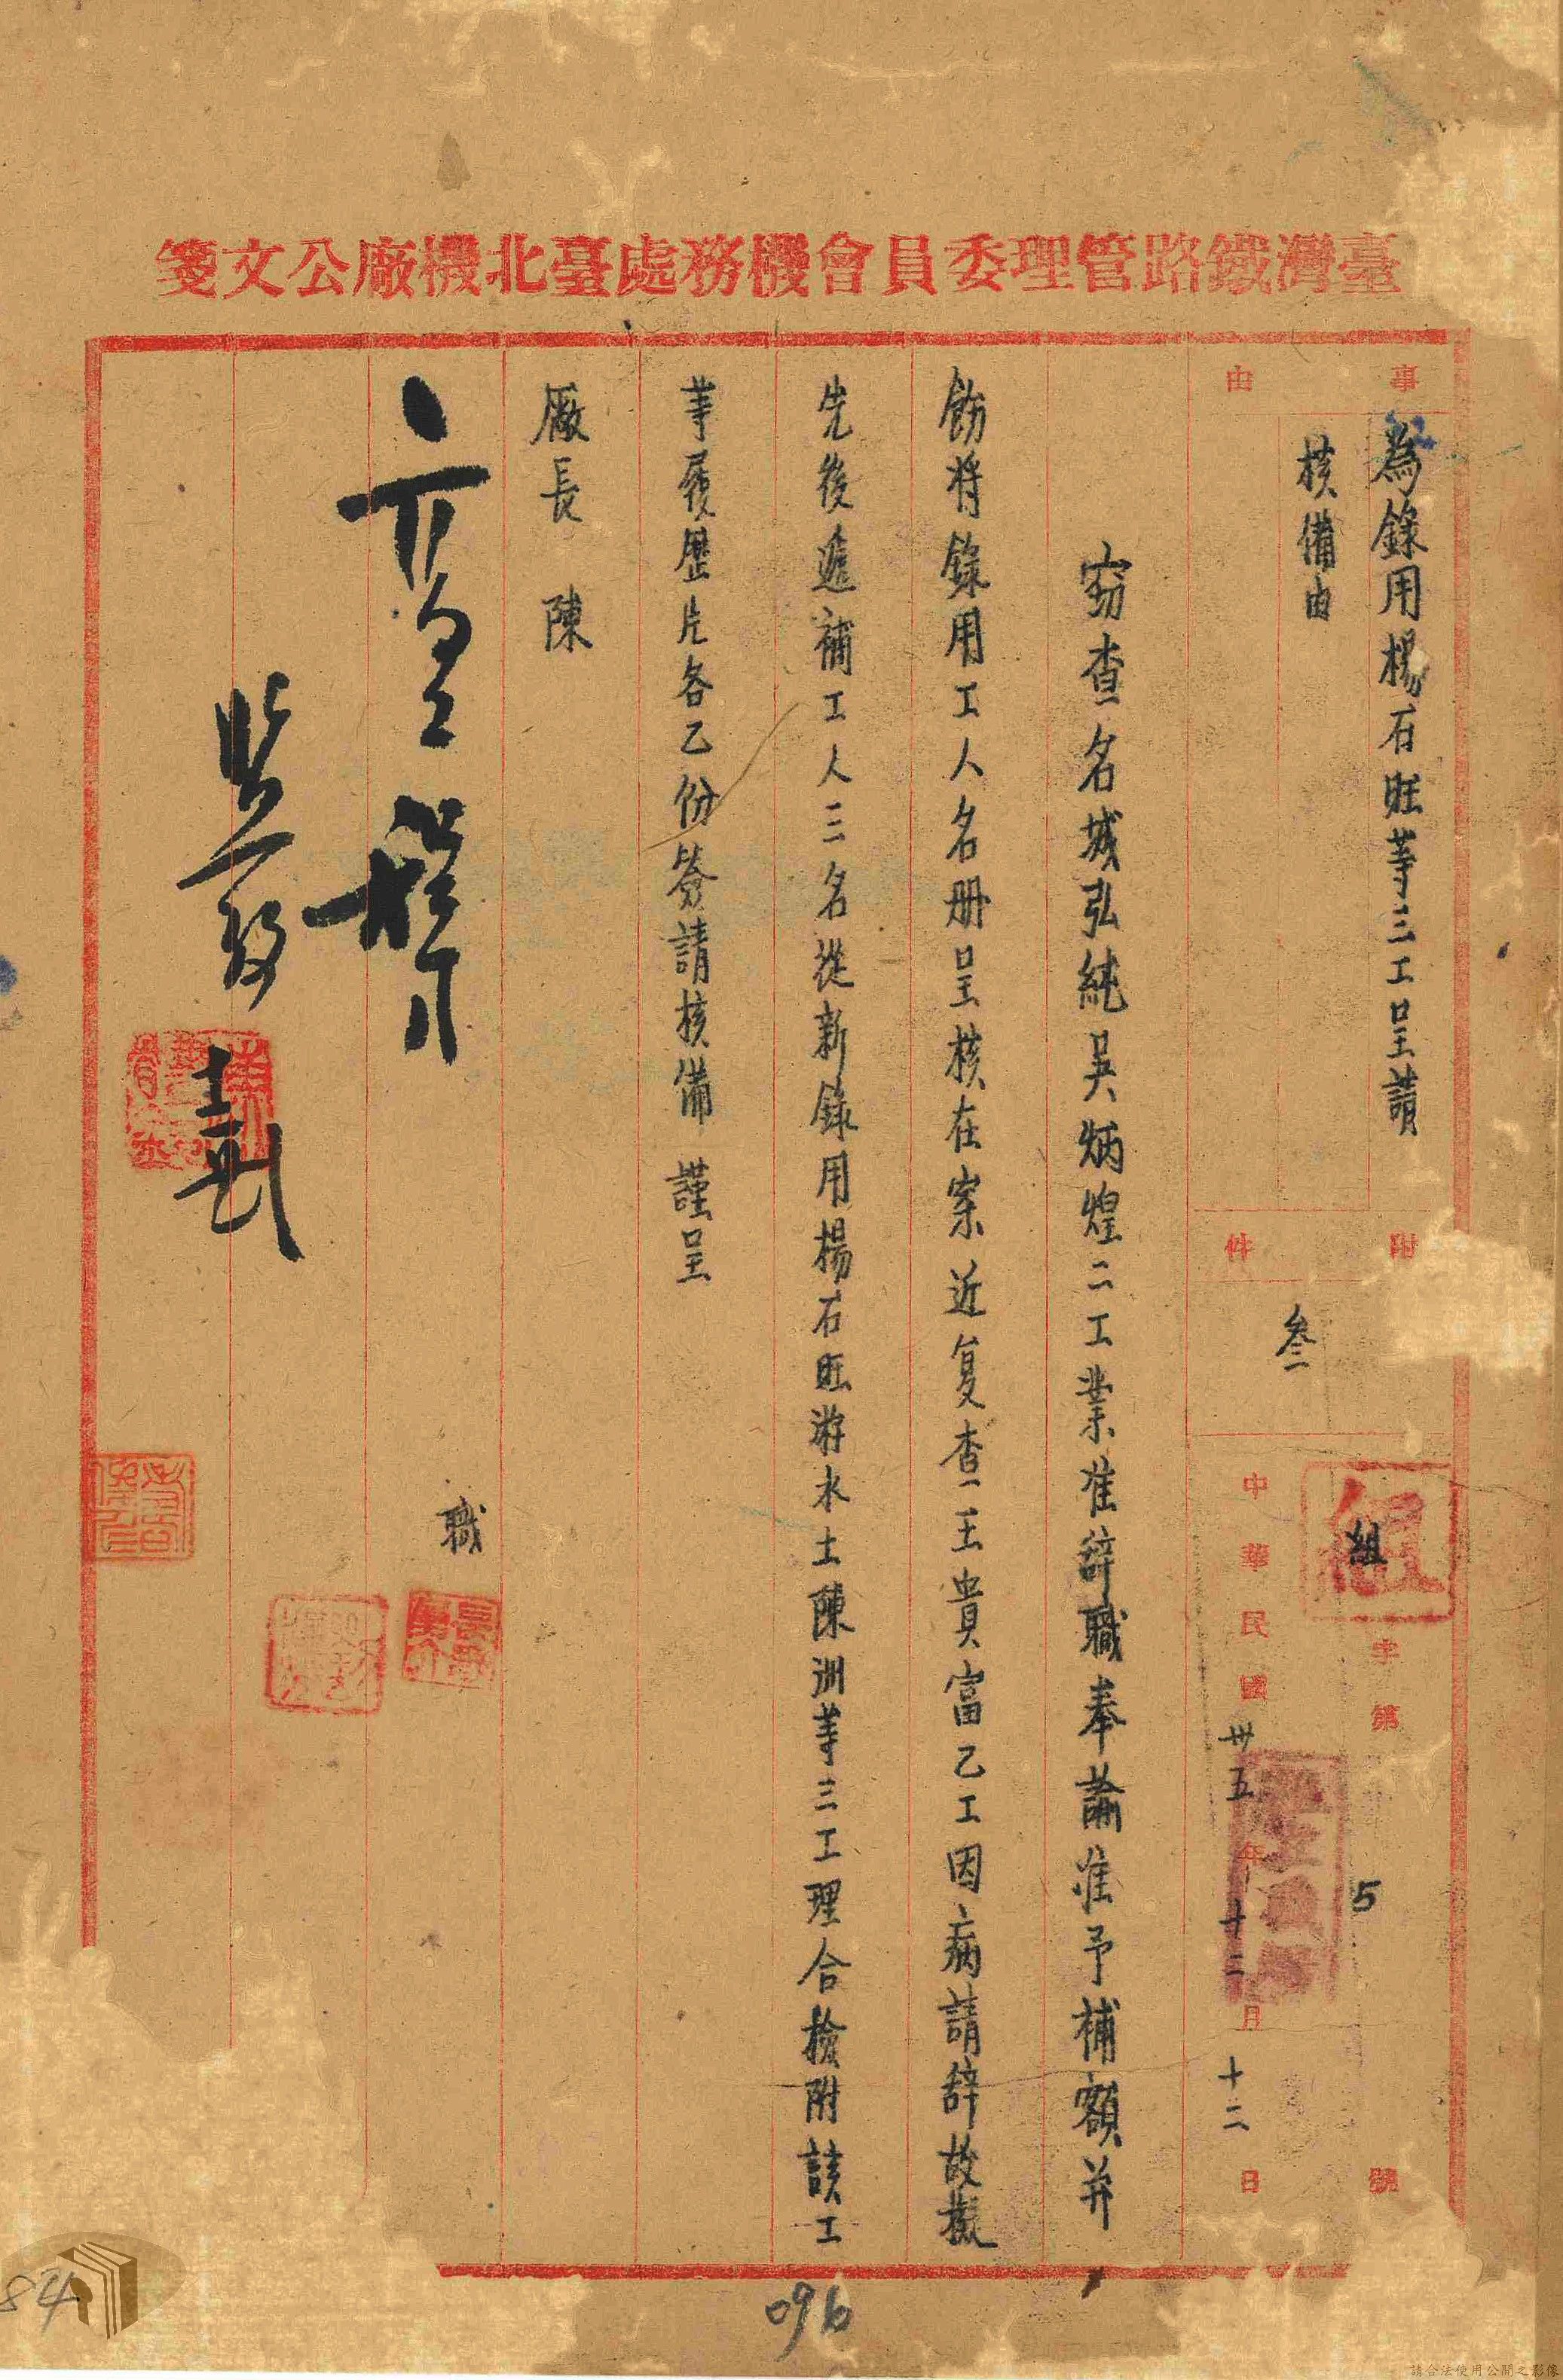 臺灣鐵路管理委員會機務處臺北機廠公文箋
事由
為錄用楊石旺等三工呈請
核備由
附件
叁
組
字第
5
號
中華民國卅五年十二月十二日
窃查名城弘純吳炳煌二工業准辞職奉諭准予補額并
飭將錄用工人名册呈核在案近复查王貴富乙工因病請辞故擬
先後遞補工人三名從新錄用楊石旺游水土陳洲等三工理合檢附該工
等履歷片各乙份簽請核備 謹呈
廠長 陳
職
096
84
請合法使用公開之影像